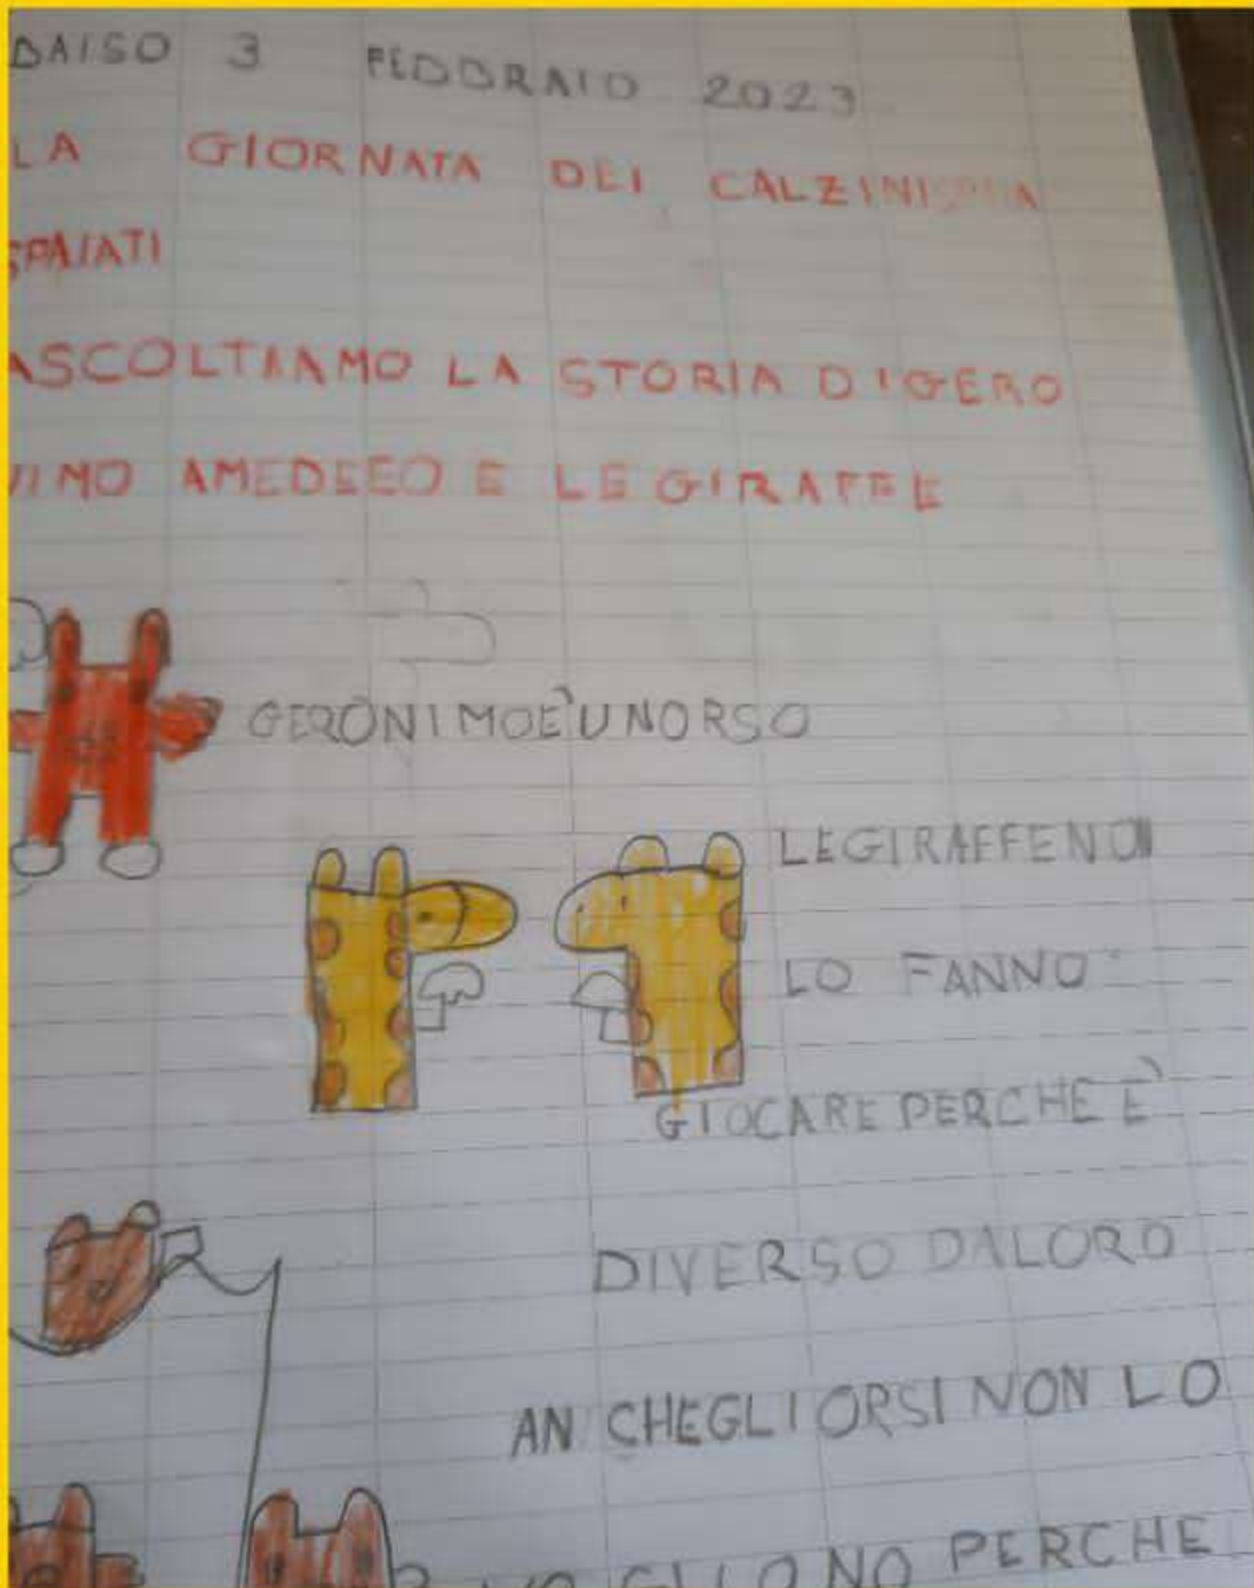 BAISO 3 FEBBRAIO 2023
LA GIORNATA DEI CALZINI
SPAIATI
ASCOLTIAMO LA STORIA DIGERO
NIMO AMEDEEO E LE GIRAFFE
GERONIMOÈUNORSO
LEGIRAFFENON
LO FANNO
GIOCARE PERCHE È
DIVERSO DALORO
ANCHEGLIORSINON LO
VOGLIONO PERCHE